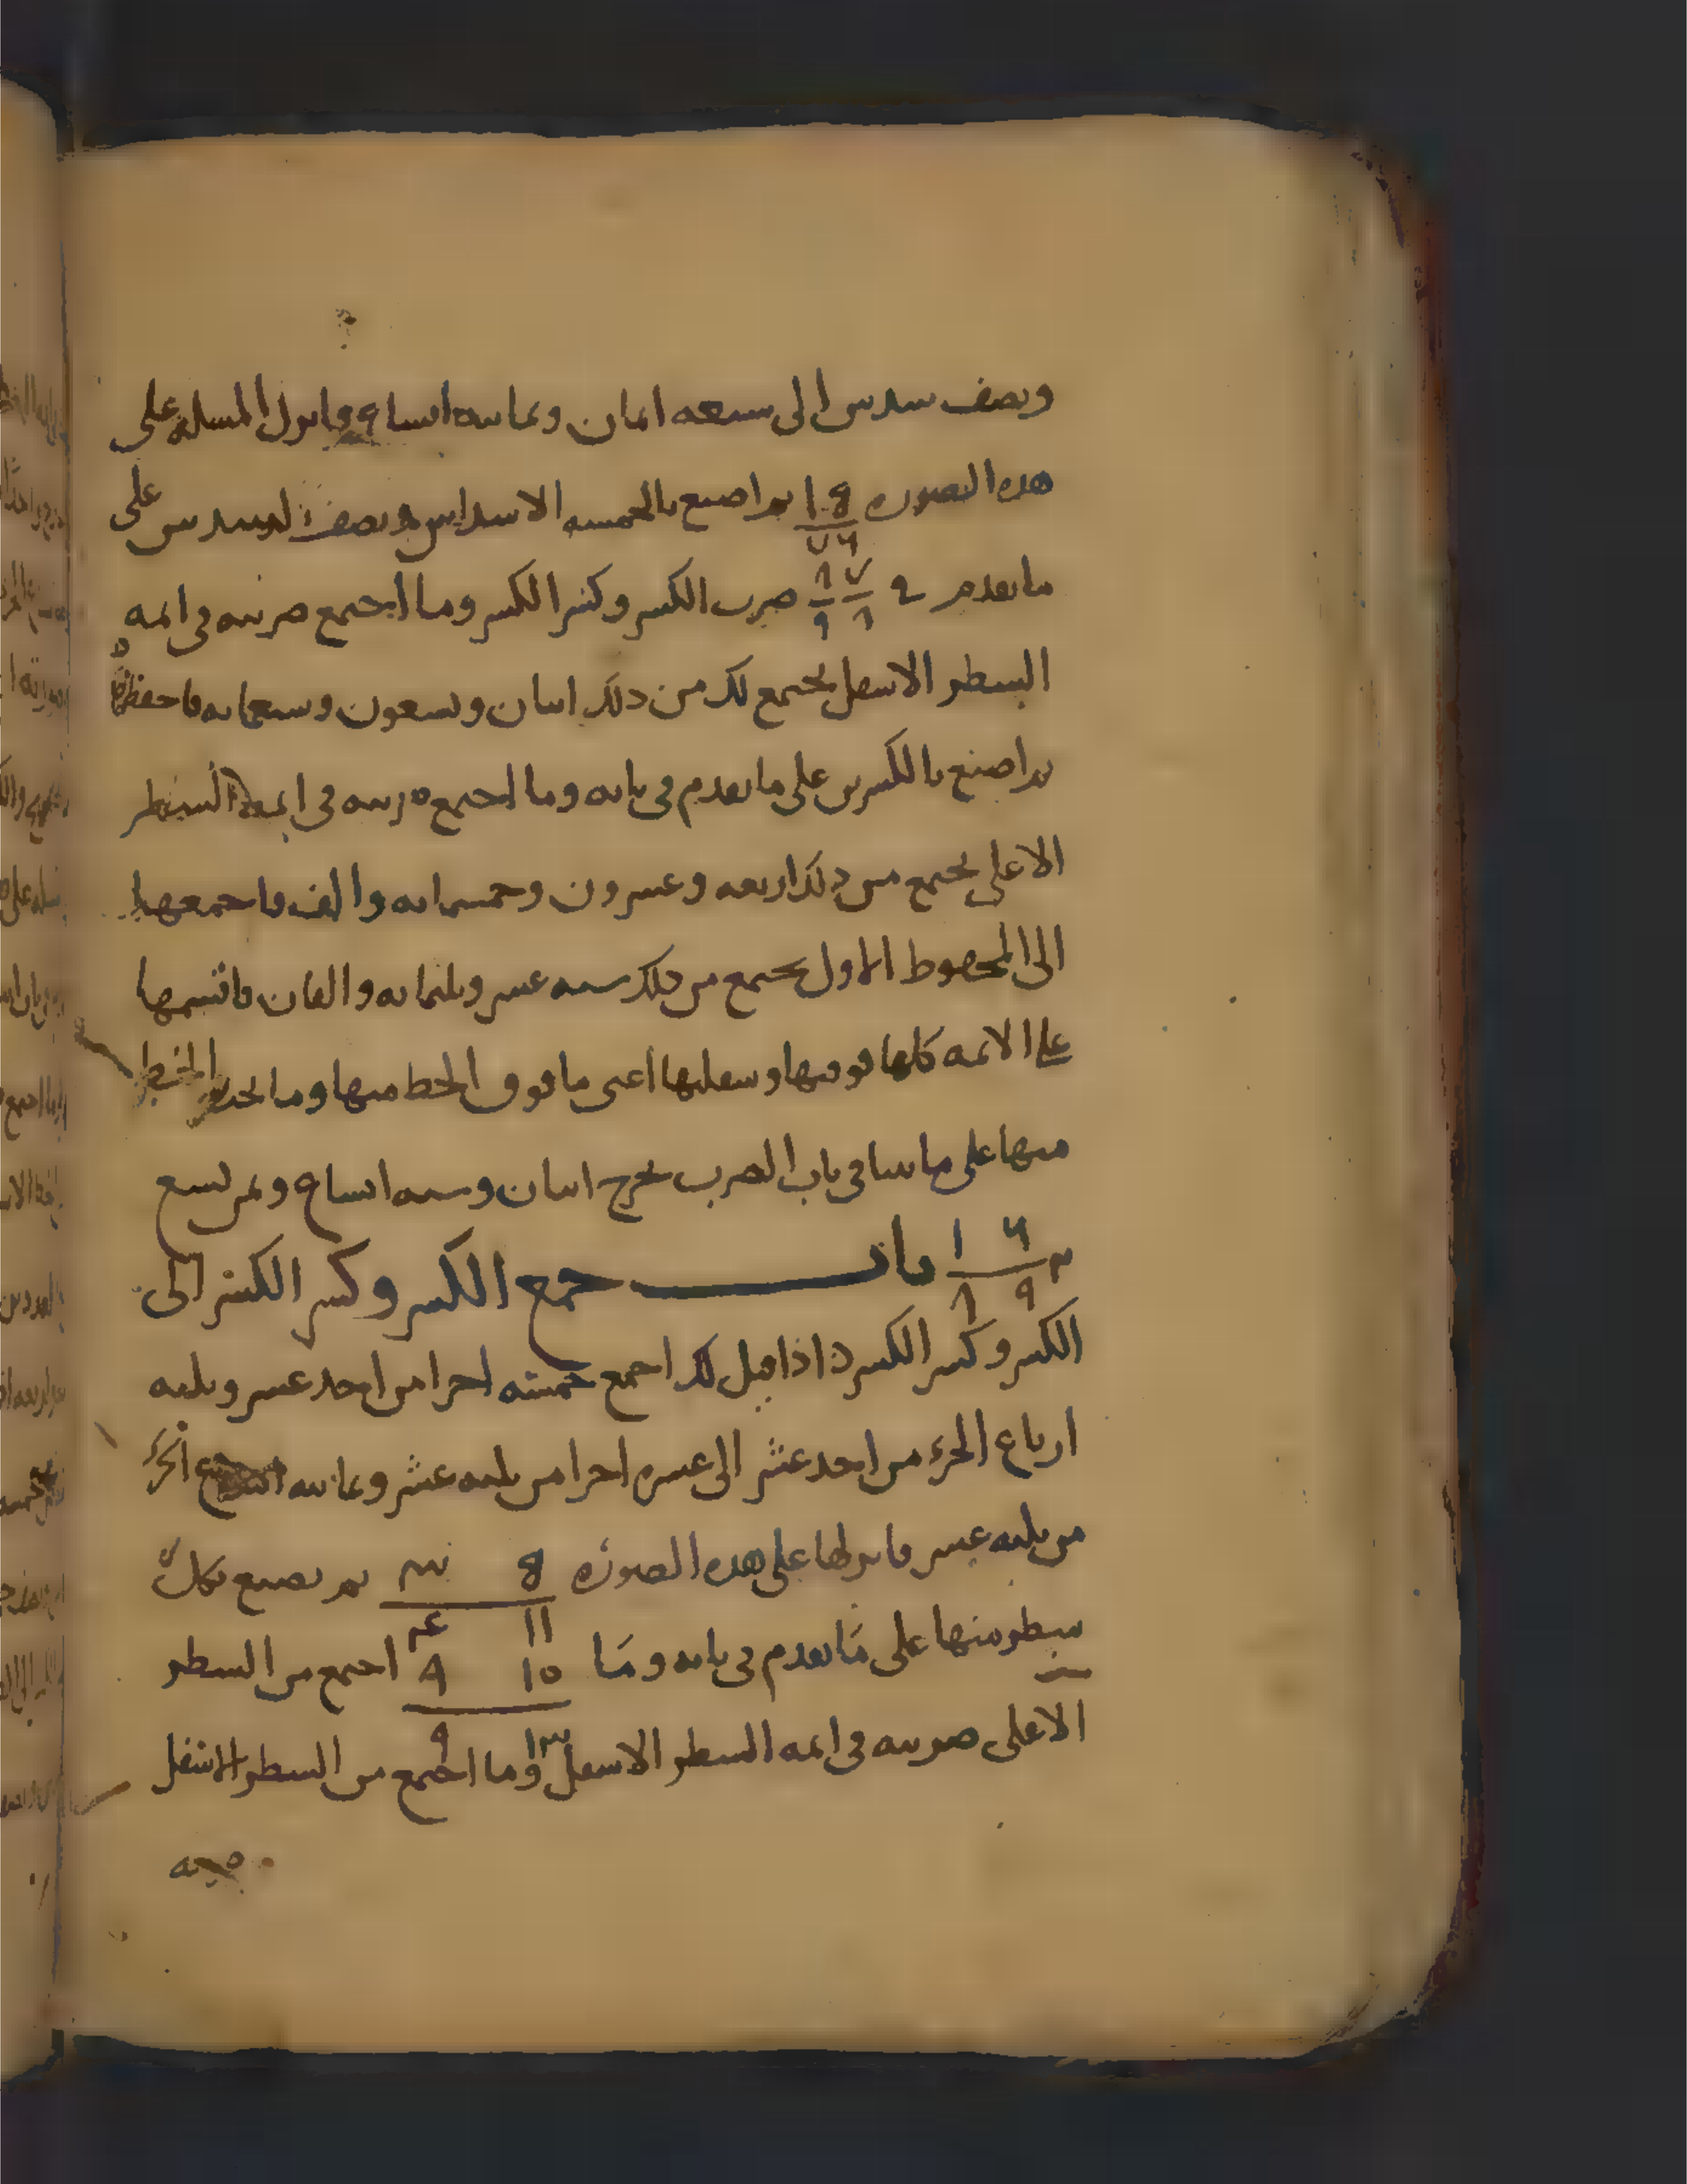 ونصف سدس الى سبعه اثمان وثمانيه اتساع فانزل المسله على
هذه الصوره ثم اصنع بالخمسه الاسداس ونصف السدس على
ما تقدم في ضرب الكسر وكسر الكسر وما اجتمع ضربته في ايمه
السطر الاسفل يجتمع لك من ذلك اثنان وتسعون وسبعمايه فاحفظها
ثم اصنع بالكسرين على ما تقدم في بابه وما اجتمع ضربته في ايمة السطر
الاعلى يجتمع من ذلك اربعه وعشرون وخمسمايه والف فاجمعها
الى المحفوظ الاول يجتمع من ذلك سته عشر وثلثمايه والفان فاقسمها
على الائمه كلها فوقيها وسفليها اعني ما فوق الخط منها وما تحت الخط
منها على ما بينا في باب الضرب يخرج اثنان وسته اتساع وثمن تسع
باب جمع الكسر وكسر الكسر الى
الكسر وكسر الكسر اذا قيل لك اجمع خمسه اجزا من احد عشر وثلثه
ارباع الجزء من احد عشر الى عشره اجزا من ثلثه عشر وثمانيه اتساع الجزء
من ثلثه عشر فانزلها على هذه الصوره ثم تصنع بكل
سطر منها على ما تقدم في بابه وما اجتمع من السطر
الاعلى ضربته في ايمه السطر الاسفل وما اجتمع من السطر الاسفل
ضربته